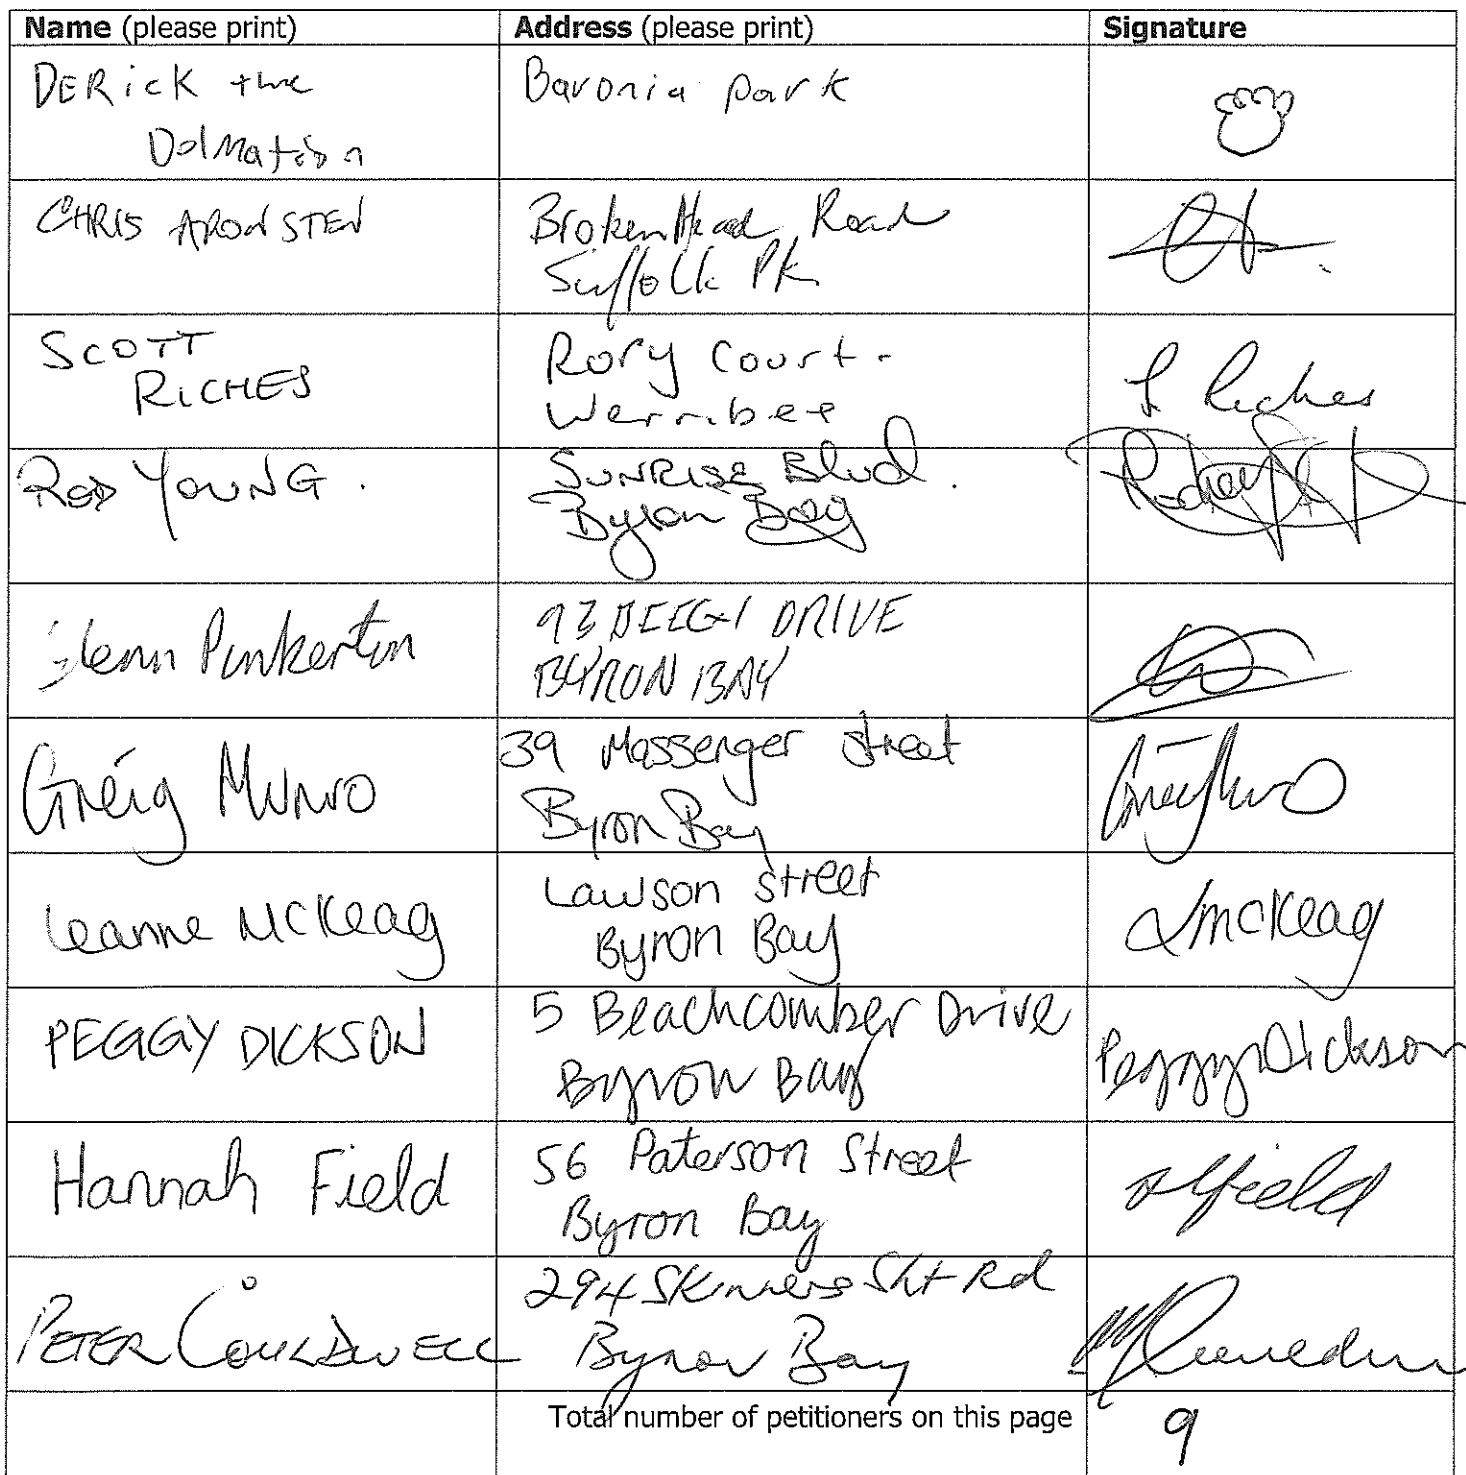 Name (please print) Address (please print) Signature
DERicK the Baronia park
Dolmation
CHRIS ARONSTEN Broken Head Road
Suffolk Pk
SCOTT Rory Court.
RICHES Werribee S Riches
ROD YOUNG. SUNRISE Blvd.
Byron Bay
Glenn Pinkerton 93 DRIVE
BYRON BAY
Greig Munro 39 Massenger Street
Byron Bay
Leanne McKeag Lawson street LMcKeag
Byron Bay
PEGGY DICKSON 5 Beachcomber Drive Peggy Dickson
Byron Bay
Hannah Field 56 Paterson Street HField
Byron Bay
PETER COULDWELL 294 Skinners Sht Rd
Byron Bay
Total number of petitioners on this page 9